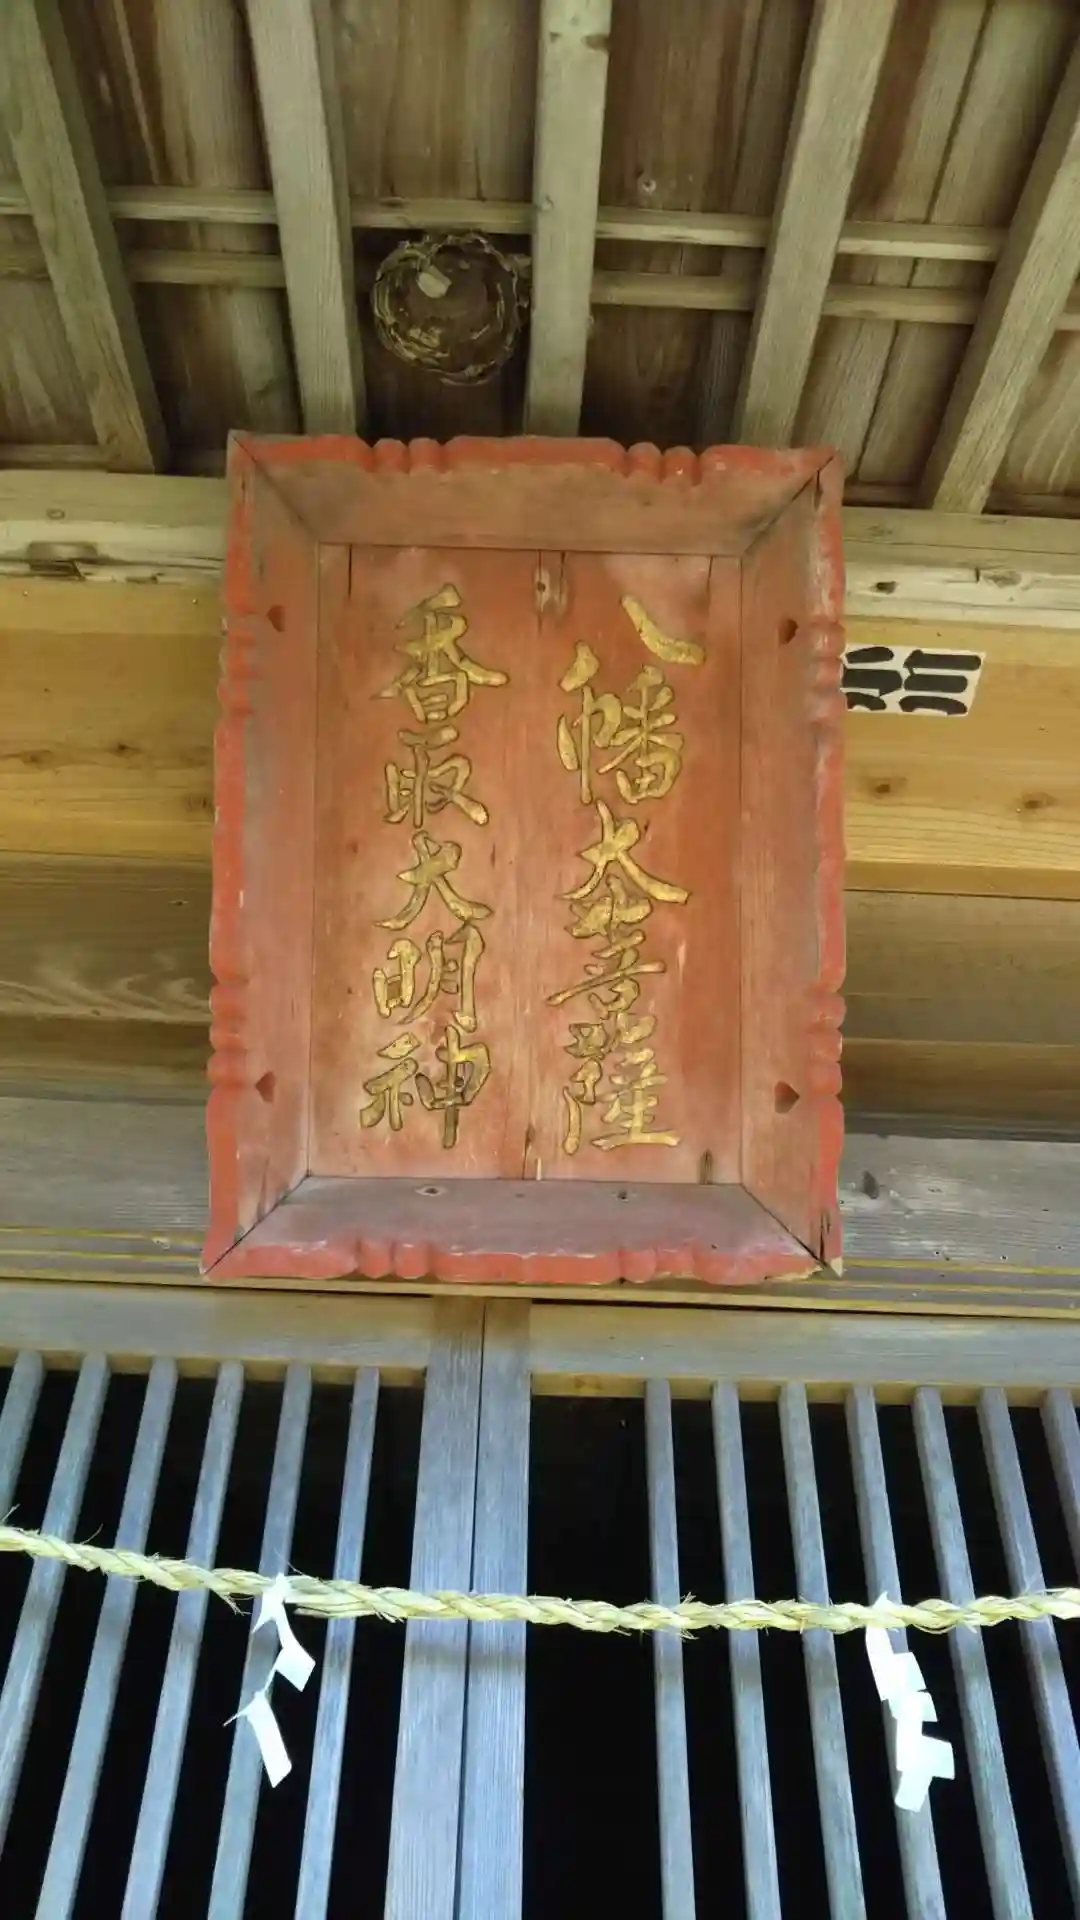 八幡大菩薩
香取大明神